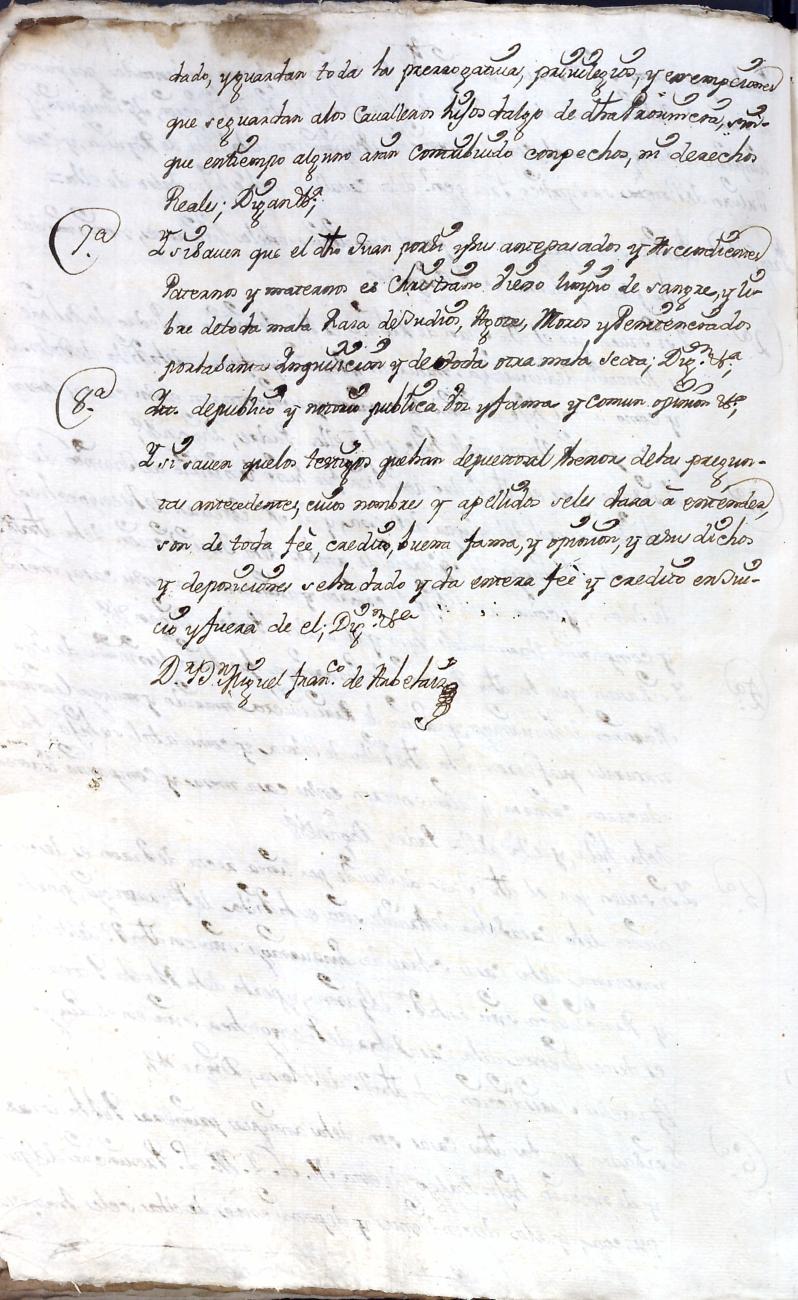 dado, y guardan toda la prerrogativa, privilegios, y exempciones
que se guardan alos Cavalleros hijos dalgo de dha Provincia, sin
que entiempo alguno aian contribuido con pechos, ni derechos
Reales; Digan &a;
7.a Y si saven que el dho Juan por si y sus antepasados y Ascendientes
Paternos y maternos es Christiano Viejo limpio de sangre, y li-
bre de toda mala Raza de Judios, Agotes, Moros y Penitenciados
por la Santa Inquisicion y de toda otra mala secta; Dig.n &a;
8.a Ytt. de publico y notorio publica voz y fama y comun opinion &a;
Y si saven que los testigos que han depuesto al thenor de las pregun-
tas antecedentes, cuios nombres y apellidos seles dara à entender,
son de toda feè, credito, buena fama, y opinion, y a sus dichos
y deposiciones se ha dado y da entera feè y credito en Jui-
cio y fuera de el; Dig.n &a
D.r D.n Miguel Fran.co de